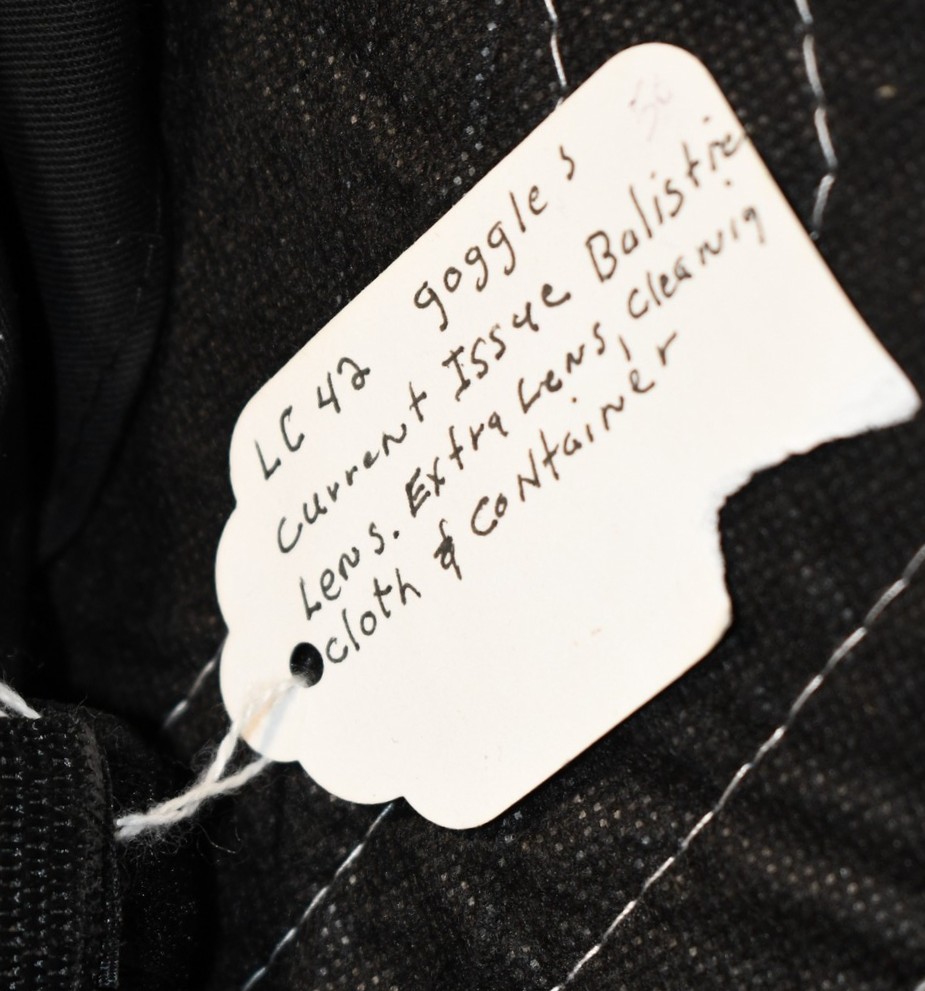 LC 42 goggles
Current Issue Balistic
Lens. Extra Lens, cleanig
cloth & container